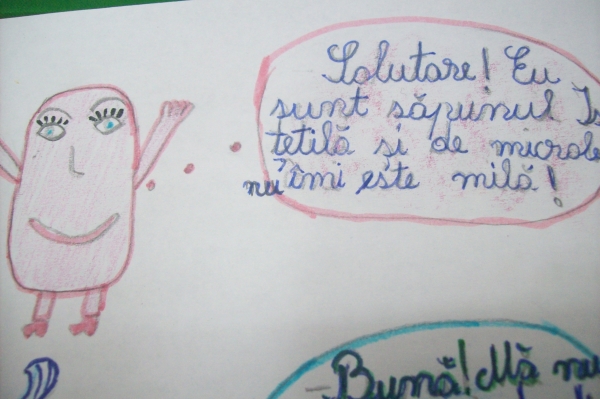 Salutare! Eu
sunt săpunul Is
tețilă și de microbe
nu îmi este milă!
Bună! Mă nu